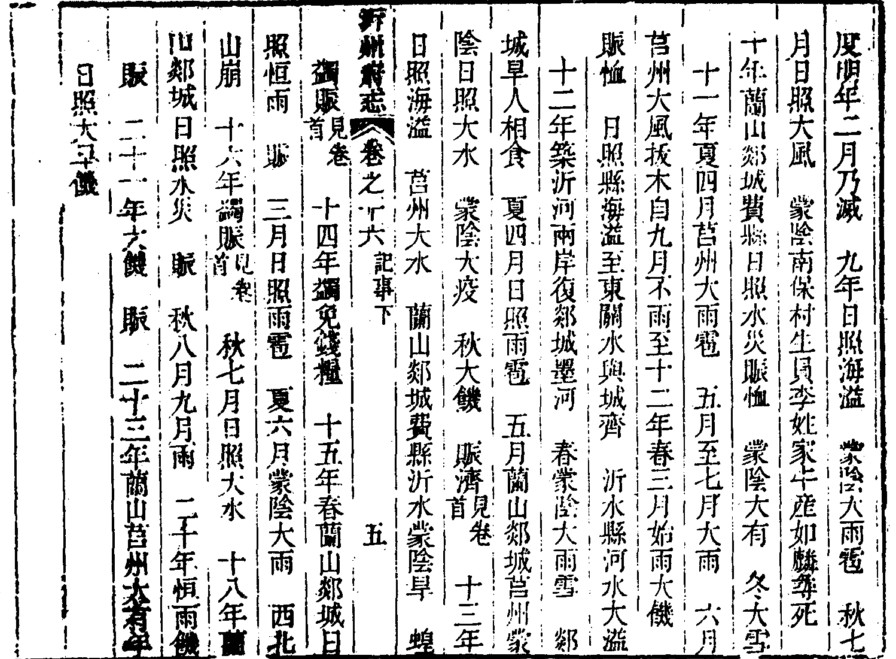 度明年二月乃滅　九年日照海溢　蒙陰大雨雹　秋七
月日照大風　蒙陰南保村生員李姓家牛産如麟尋死
十年蘭山郯城費縣日照水災賑恤　蒙陰大有　冬大雪
十一年夏四月莒州大雨雹　五月至七月大雨　六月
莒州大風拔木自九月不雨至十二年春三月始雨大饑
賑恤　日照縣海溢至東關水與城齊　沂水縣河水大溢
十二年築沂河兩岸復郯城墨河　春蒙陰大雨雪　郯
城旱人相食　夏四月日照雨雹　五月蘭山郯城莒州蒙
陰日照大水　蒙陰大疫　秋大饑　賑濟見卷首　十三年
日照海溢　莒州大水　蘭山郯城費縣沂水蒙陰旱　蝗
沂州府志　卷之十六　記事下　五
蠲賑見卷首　十四年蠲免錢糧　十五年春蘭山郯城日
照恒雨　賑　三月日照雨雹　夏六月蒙陰大雨　西北
山崩　十六年蠲賑見卷首　秋七月日照大水　十八年蘭
山郯城日照水災　賑　秋八月九月雨　二十年恒雨饑
賑　二十一年大饑　賑　二十三年蘭山莒州大有年
日照大旱饑